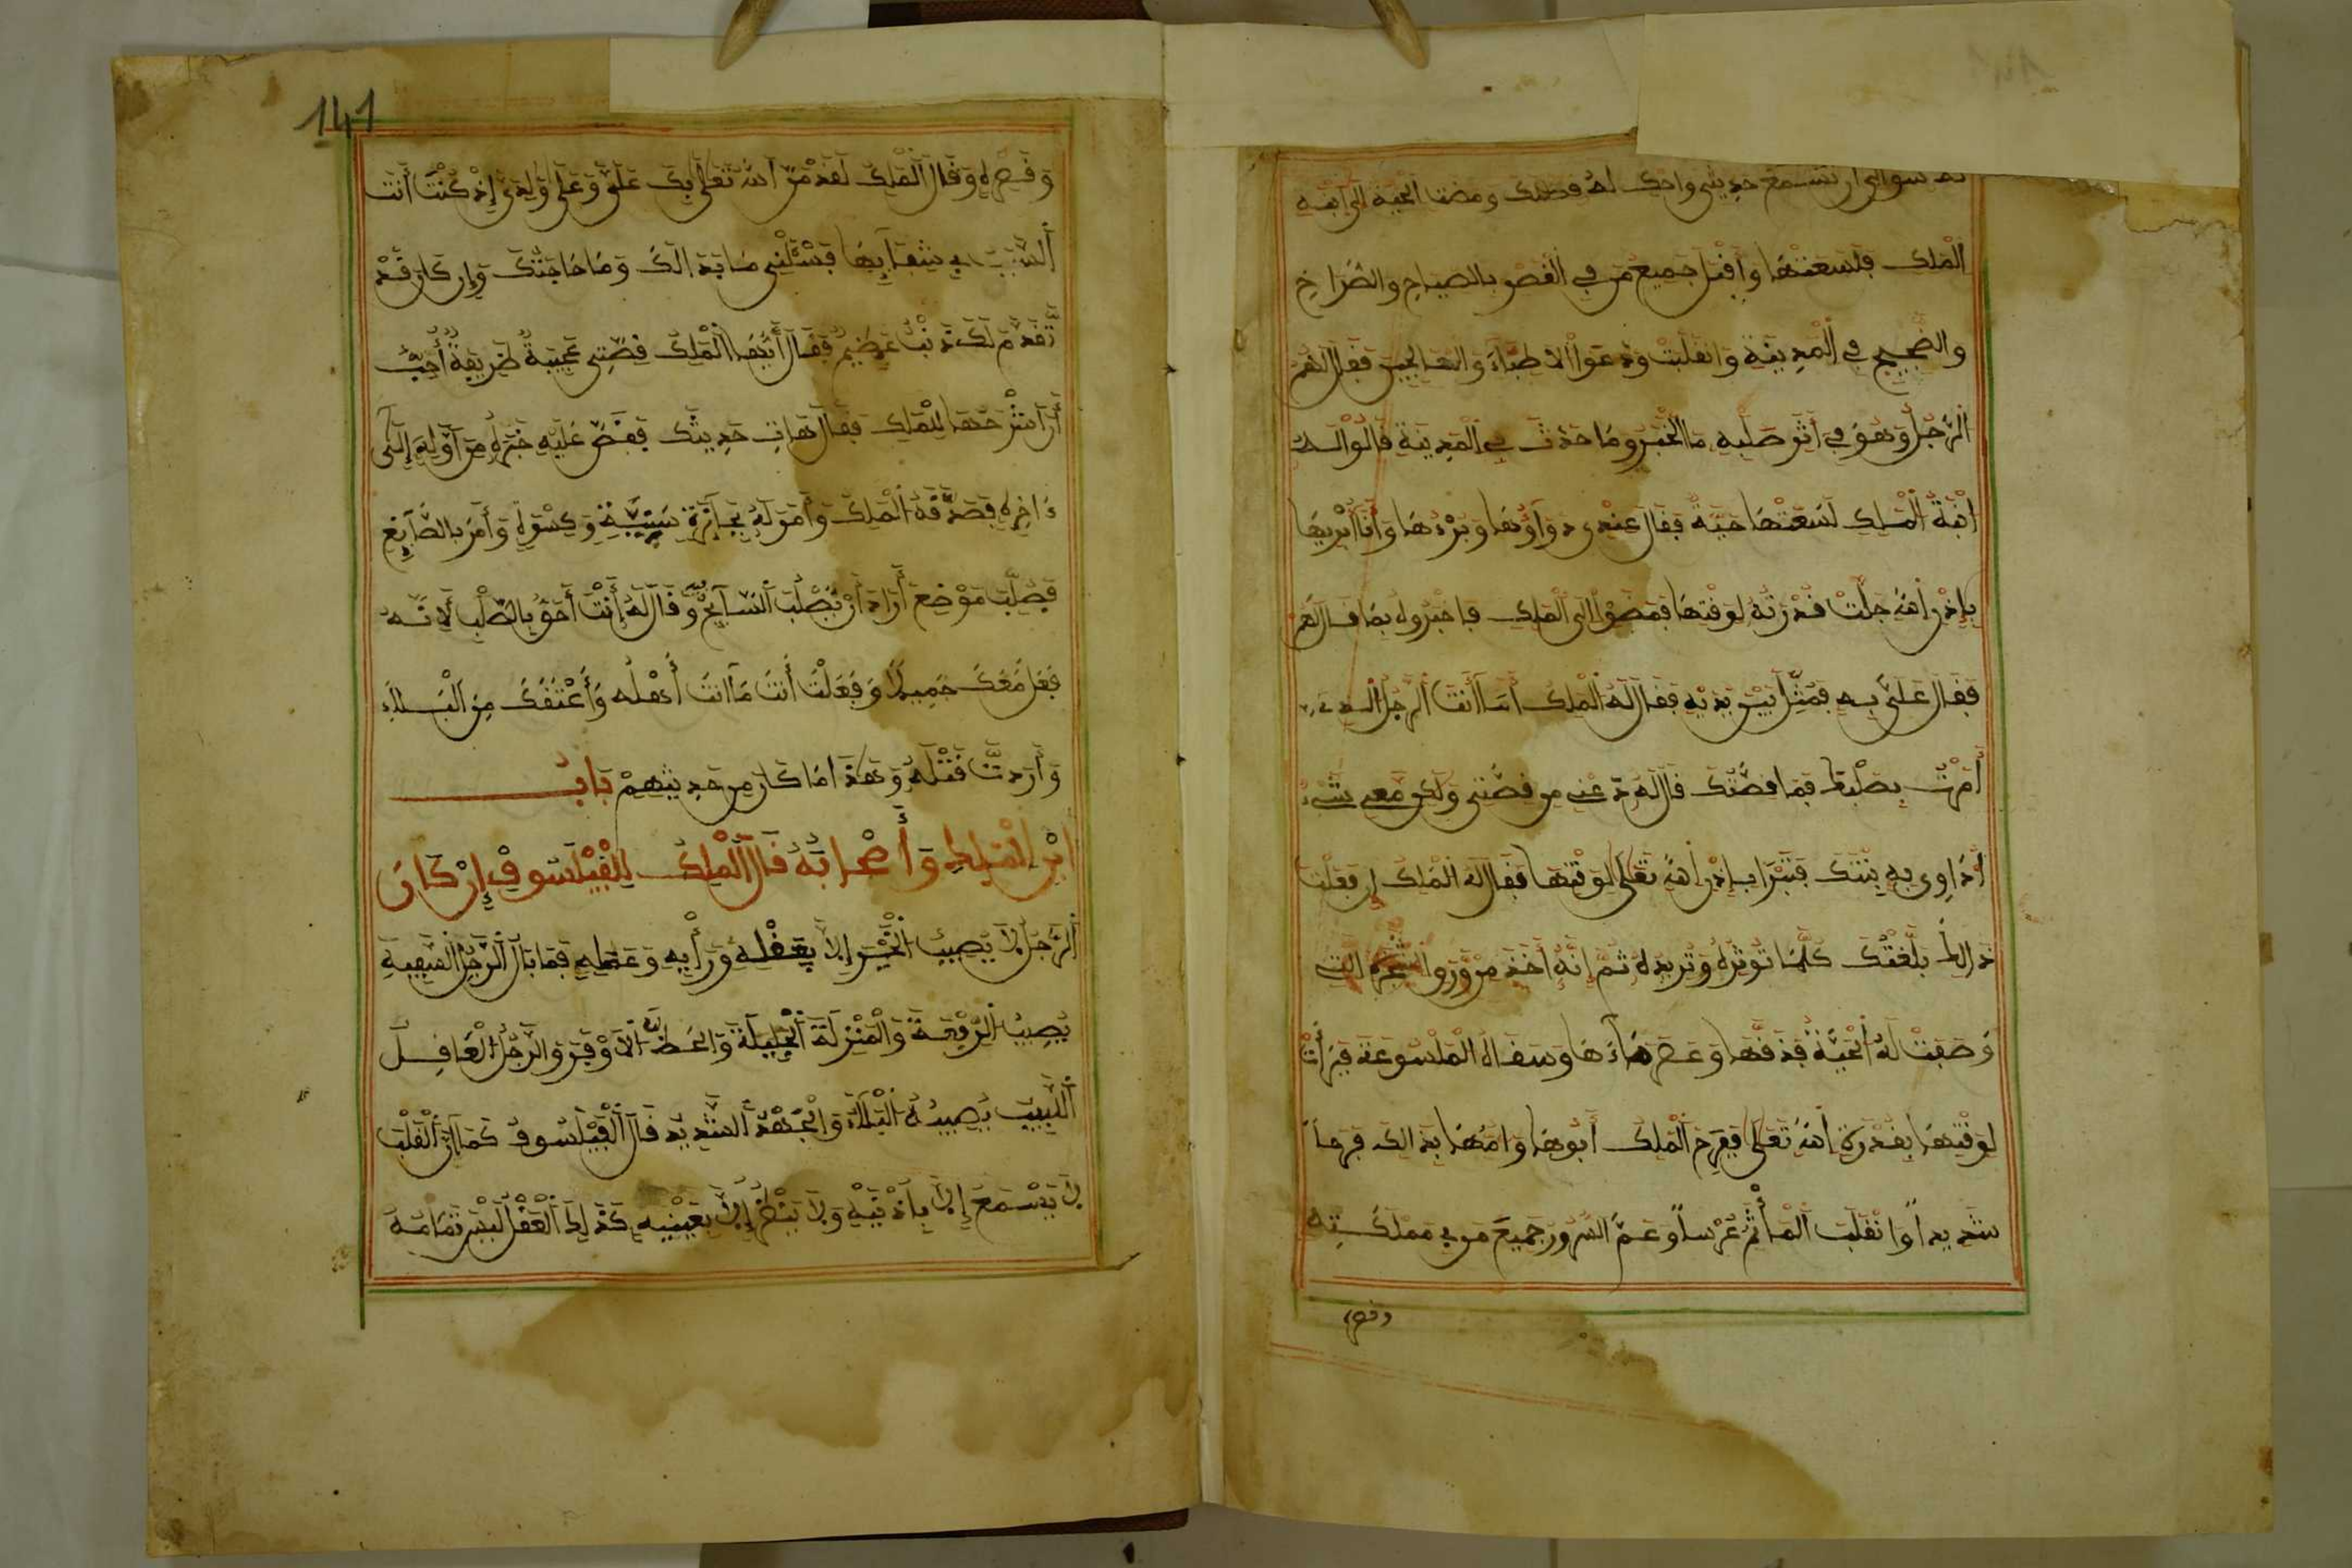 ان تسمع حديثي واحك له قصتك ومضت الحية الى ابنة
الملك فلسعتها وأقبل جميع من في القصر بالصياح والصراخ
والضجيج في المدينة وانقلبت ودعوا الاطباء والمعالجين فقال لهم
الرجل وهو في أثر صلبه ما الخبر وما حدث في المدينة قالوا له
ابنة الملك لسعتها حية فقال عندي دواؤها وبرءها وأنا أبريها
بإذن الله جلت قدرته لوقتها فمضوا الى الملك فاخبروه بما قال لهم
فقال علي به فمثل بين يديه فقال له الملك أما أنت الرجل الذي
أمرت بصلبه فما قصتك قال له دعني من قصتي ولكن معي شيء
أداوي به بنتك فتبرا بإذن الله تعلى لوقتها فقال له الملك إن فعلت
ذالك بلغتك كلما تؤثره وتريده ثم إنه أخذ من ورق الشجرة التي
وصفت له الحية فدقها وعصر ماءها وسقاه الملسوعة فبرأت
لوقتها بقدرة الله تعلى ففرح الملك أبوها وامها بذالك فرحا
شديدا وانقلب المأتم عرسا وعم السرور جميع من في مملكته
وقصره
141
وقصره وقال الملك لقد من الله تعلى بك علي وعلى ولدي إذ كنت أنت
السبب في شفايها فسئلني ما بدا لك وما حاجتك وإن كان قد
تقدم لك ذنب عظيم فقال أيها الملك قصتي عجيبة طريفة أحب
أن أشرحها للملك فقال هات حديثك فقص عليه خبره من أوله إلى
ءاخره فصدقه الملك وأمر له بجائزة سنية وكسوة وأمر بالصايغ
فصلب موضع أراد أن يصلب السايح وقال له أنت أحق بالصلب لانه
فعل معك جميلا وفعلت أنت ما انت أهله وأعتقك من البلاء
وأردت قتله وهذا ما كان من حديثهم باب
ابن الملك وأصحابه قال الملك للفيلسوف إن كان
الرجل لا يصيب الخير إلا بعقله ورأيه وعلمه فما بال الرجل السفيه
يصيب الرفعة والمنزلة الجليلة والحظ الأوفر والرجل العاقل
اللبيب يصيبه البلاء والجهد الشديد قال الفيلسوف كما أن القلب
لا يسمع إلا بأذنيه ولا ينظر إلا بعينيه كذلك العقل ليس تمامه